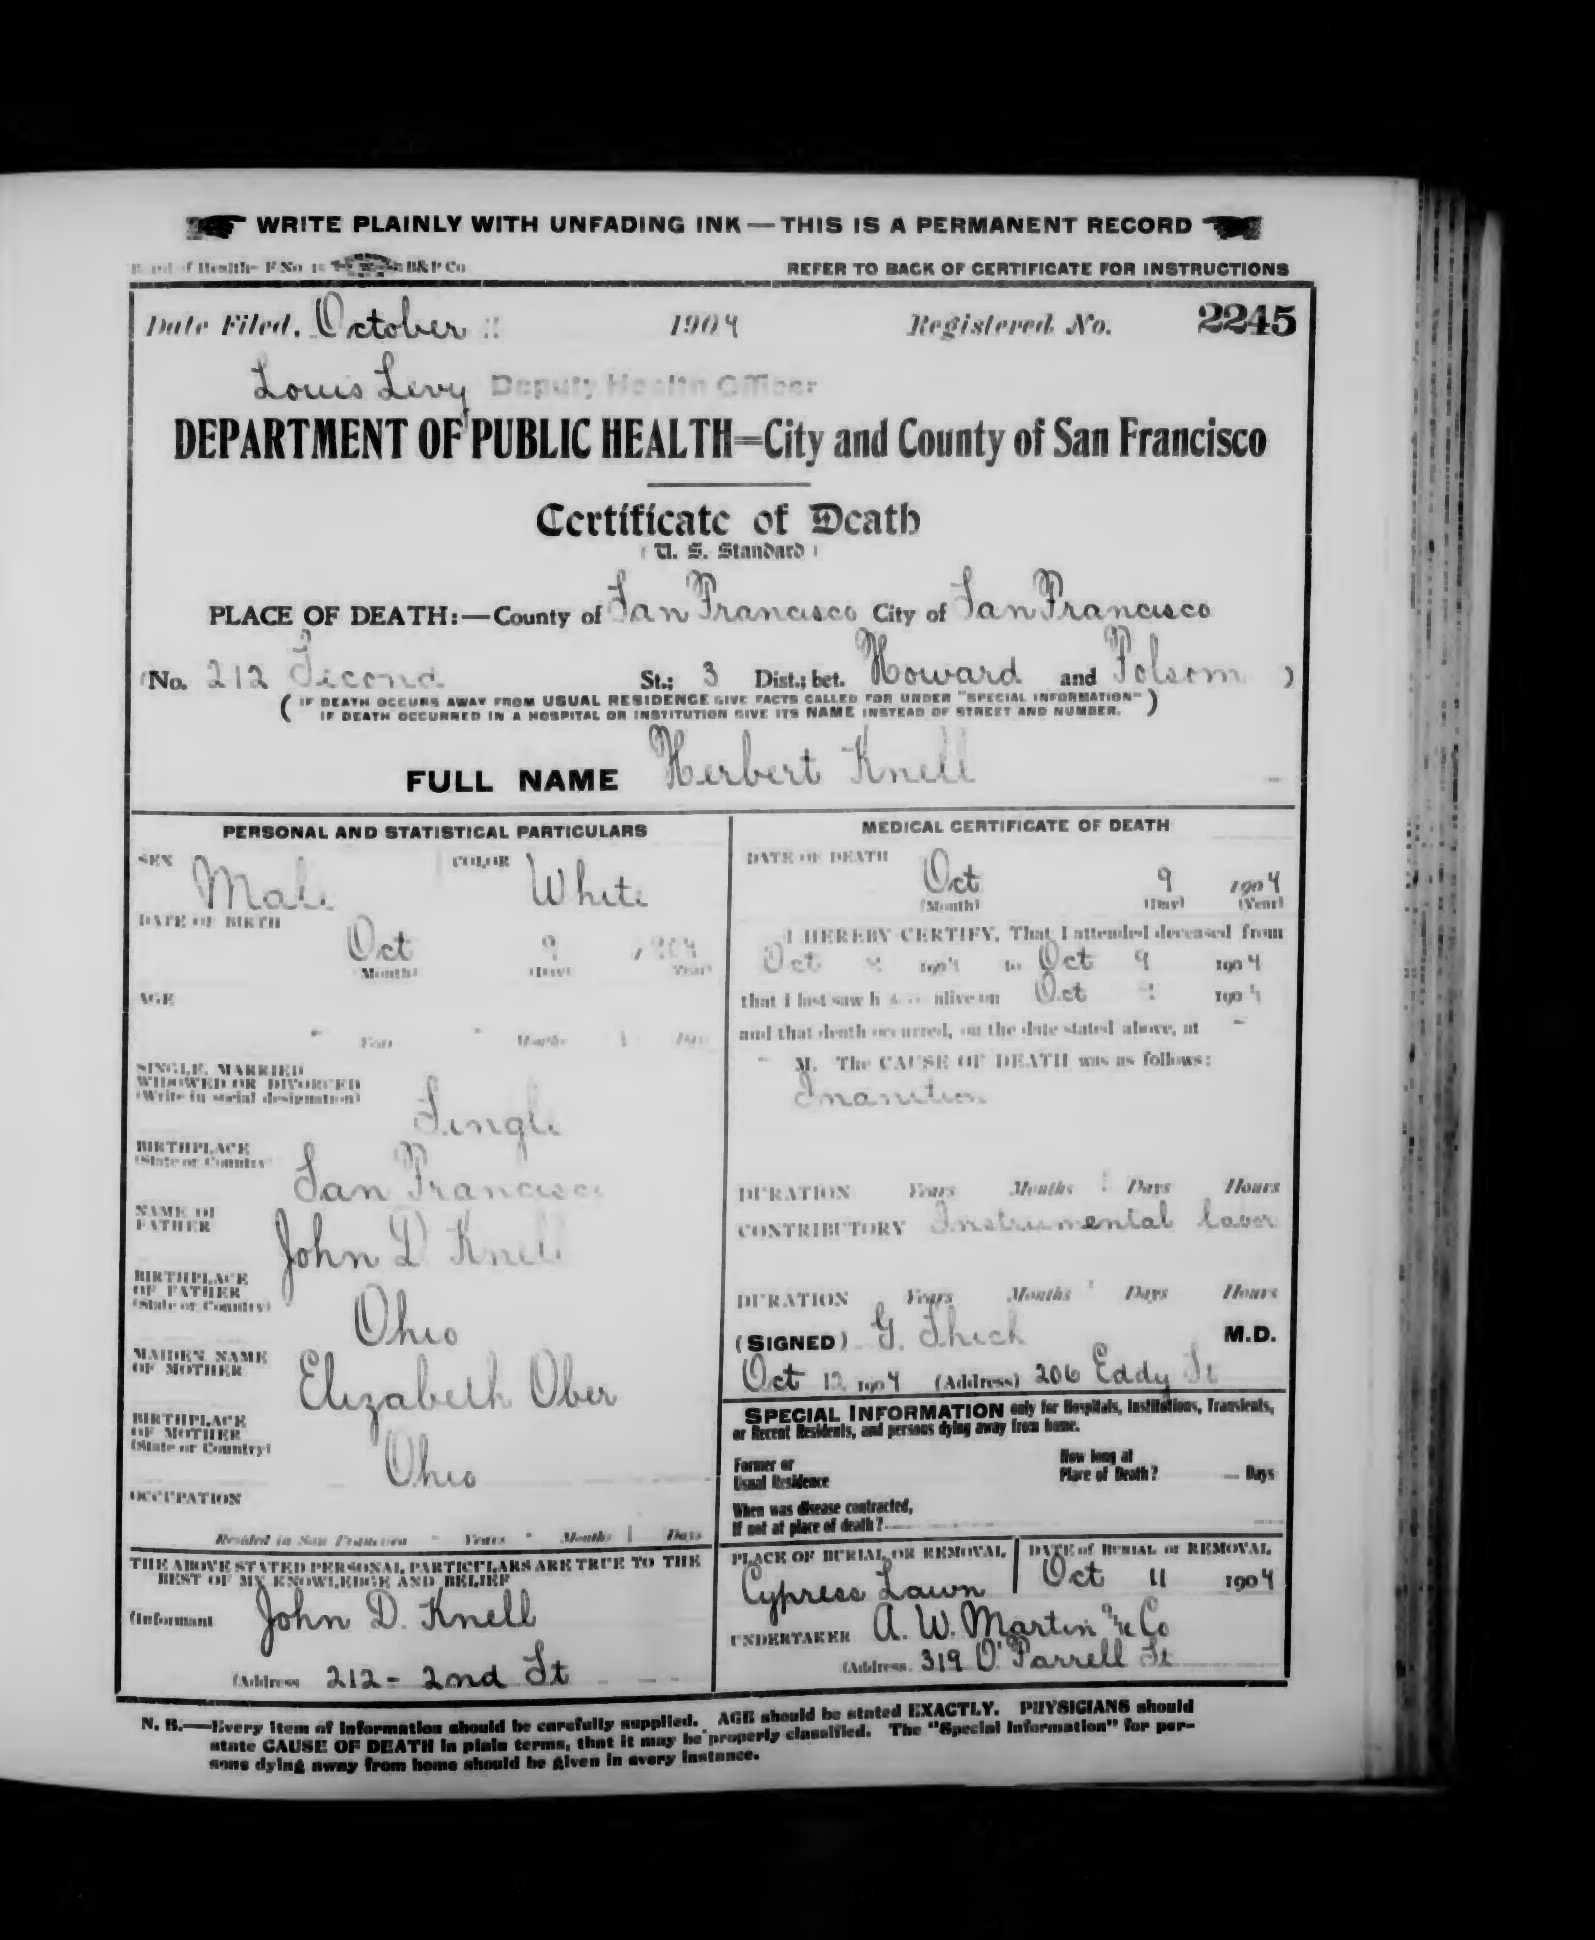 WRITE PLAINLY WITH UNFADING INK — THIS IS A PERMANENT RECORD
Board of Health- F No. 1 B&P Co
REFER TO BACK OF CERTIFICATE FOR INSTRUCTIONS
Date Filed, October 11 1904 Registered No. 2245
Louis Levy Deputy Health Officer
DEPARTMENT OF PUBLIC HEALTH=City and County of San Francisco
Certificate of Death
(U. S. Standard)
PLACE OF DEATH:—County of San Francisco City of San Francisco
(No. 212 Second St.; 3 Dist.; bet. Howard and Folsom )
( IF DEATH OCCURS AWAY FROM USUAL RESIDENCE GIVE FACTS CALLED FOR UNDER "SPECIAL INFORMATION" )
IF DEATH OCCURRED IN A HOSPITAL OR INSTITUTION GIVE ITS NAME INSTEAD OF STREET AND NUMBER.
FULL NAME Herbert Knell
PERSONAL AND STATISTICAL PARTICULARS
SEX Male COLOR White
DATE OF BIRTH
Oct 9 1904
(Month) (Day) (Year)
AGE
Years Months 1 Days
SINGLE, MARRIED
WIDOWED OR DIVORCED
(Write in social designation)
Single
BIRTHPLACE
(State or Country)
San Francisco
NAME OF
FATHER
John D Knell
BIRTHPLACE
OF FATHER
(State or Country)
Ohio
MAIDEN NAME
OF MOTHER
Elizabeth Ober
BIRTHPLACE
OF MOTHER
(State or Country)
Ohio
OCCUPATION
Resided in San Francisco - Years - Months 1 Days
THE ABOVE STATED PERSONAL PARTICULARS ARE TRUE TO THE
BEST OF MY KNOWLEDGE AND BELIEF
(Informant John D. Knell
(Address 212 - 2nd St
MEDICAL CERTIFICATE OF DEATH
DATE OF DEATH
Oct 9 1904
(Month) (Day) (Year)
I HEREBY CERTIFY, That I attended deceased from
Oct 1904 to Oct 9 1904
that I last saw h alive on Oct 1904
and that death occurred, on the date stated above, at -
- M. The CAUSE OF DEATH was as follows:
Inanition
DURATION Years Months Days Hours
CONTRIBUTORY Instrumental labor
DURATION Years Months Days Hours
(SIGNED) G. M.D.
Oct 1904 (Address) 206 Eddy St
SPECIAL INFORMATION only for Hospitals, Institutions, Transients,
or Recent Residents, and persons dying away from home.
Former or
Usual Residence
How long at
Place of Death? Days
When was disease contracted,
If not at place of death?
PLACE OF BURIAL OR REMOVAL
Cypress Lawn
DATE of BURIAL or REMOVAL
Oct 11 1904
UNDERTAKER A. W. Martin & Co
(Address 319 O'Farrell St
N. B.—Every item of information should be carefully supplied. AGE should be stated EXACTLY. PHYSICIANS should
state CAUSE OF DEATH in plain terms, that it may be properly classified. The "Special Information" for per-
sons dying away from home should be given in every instance.